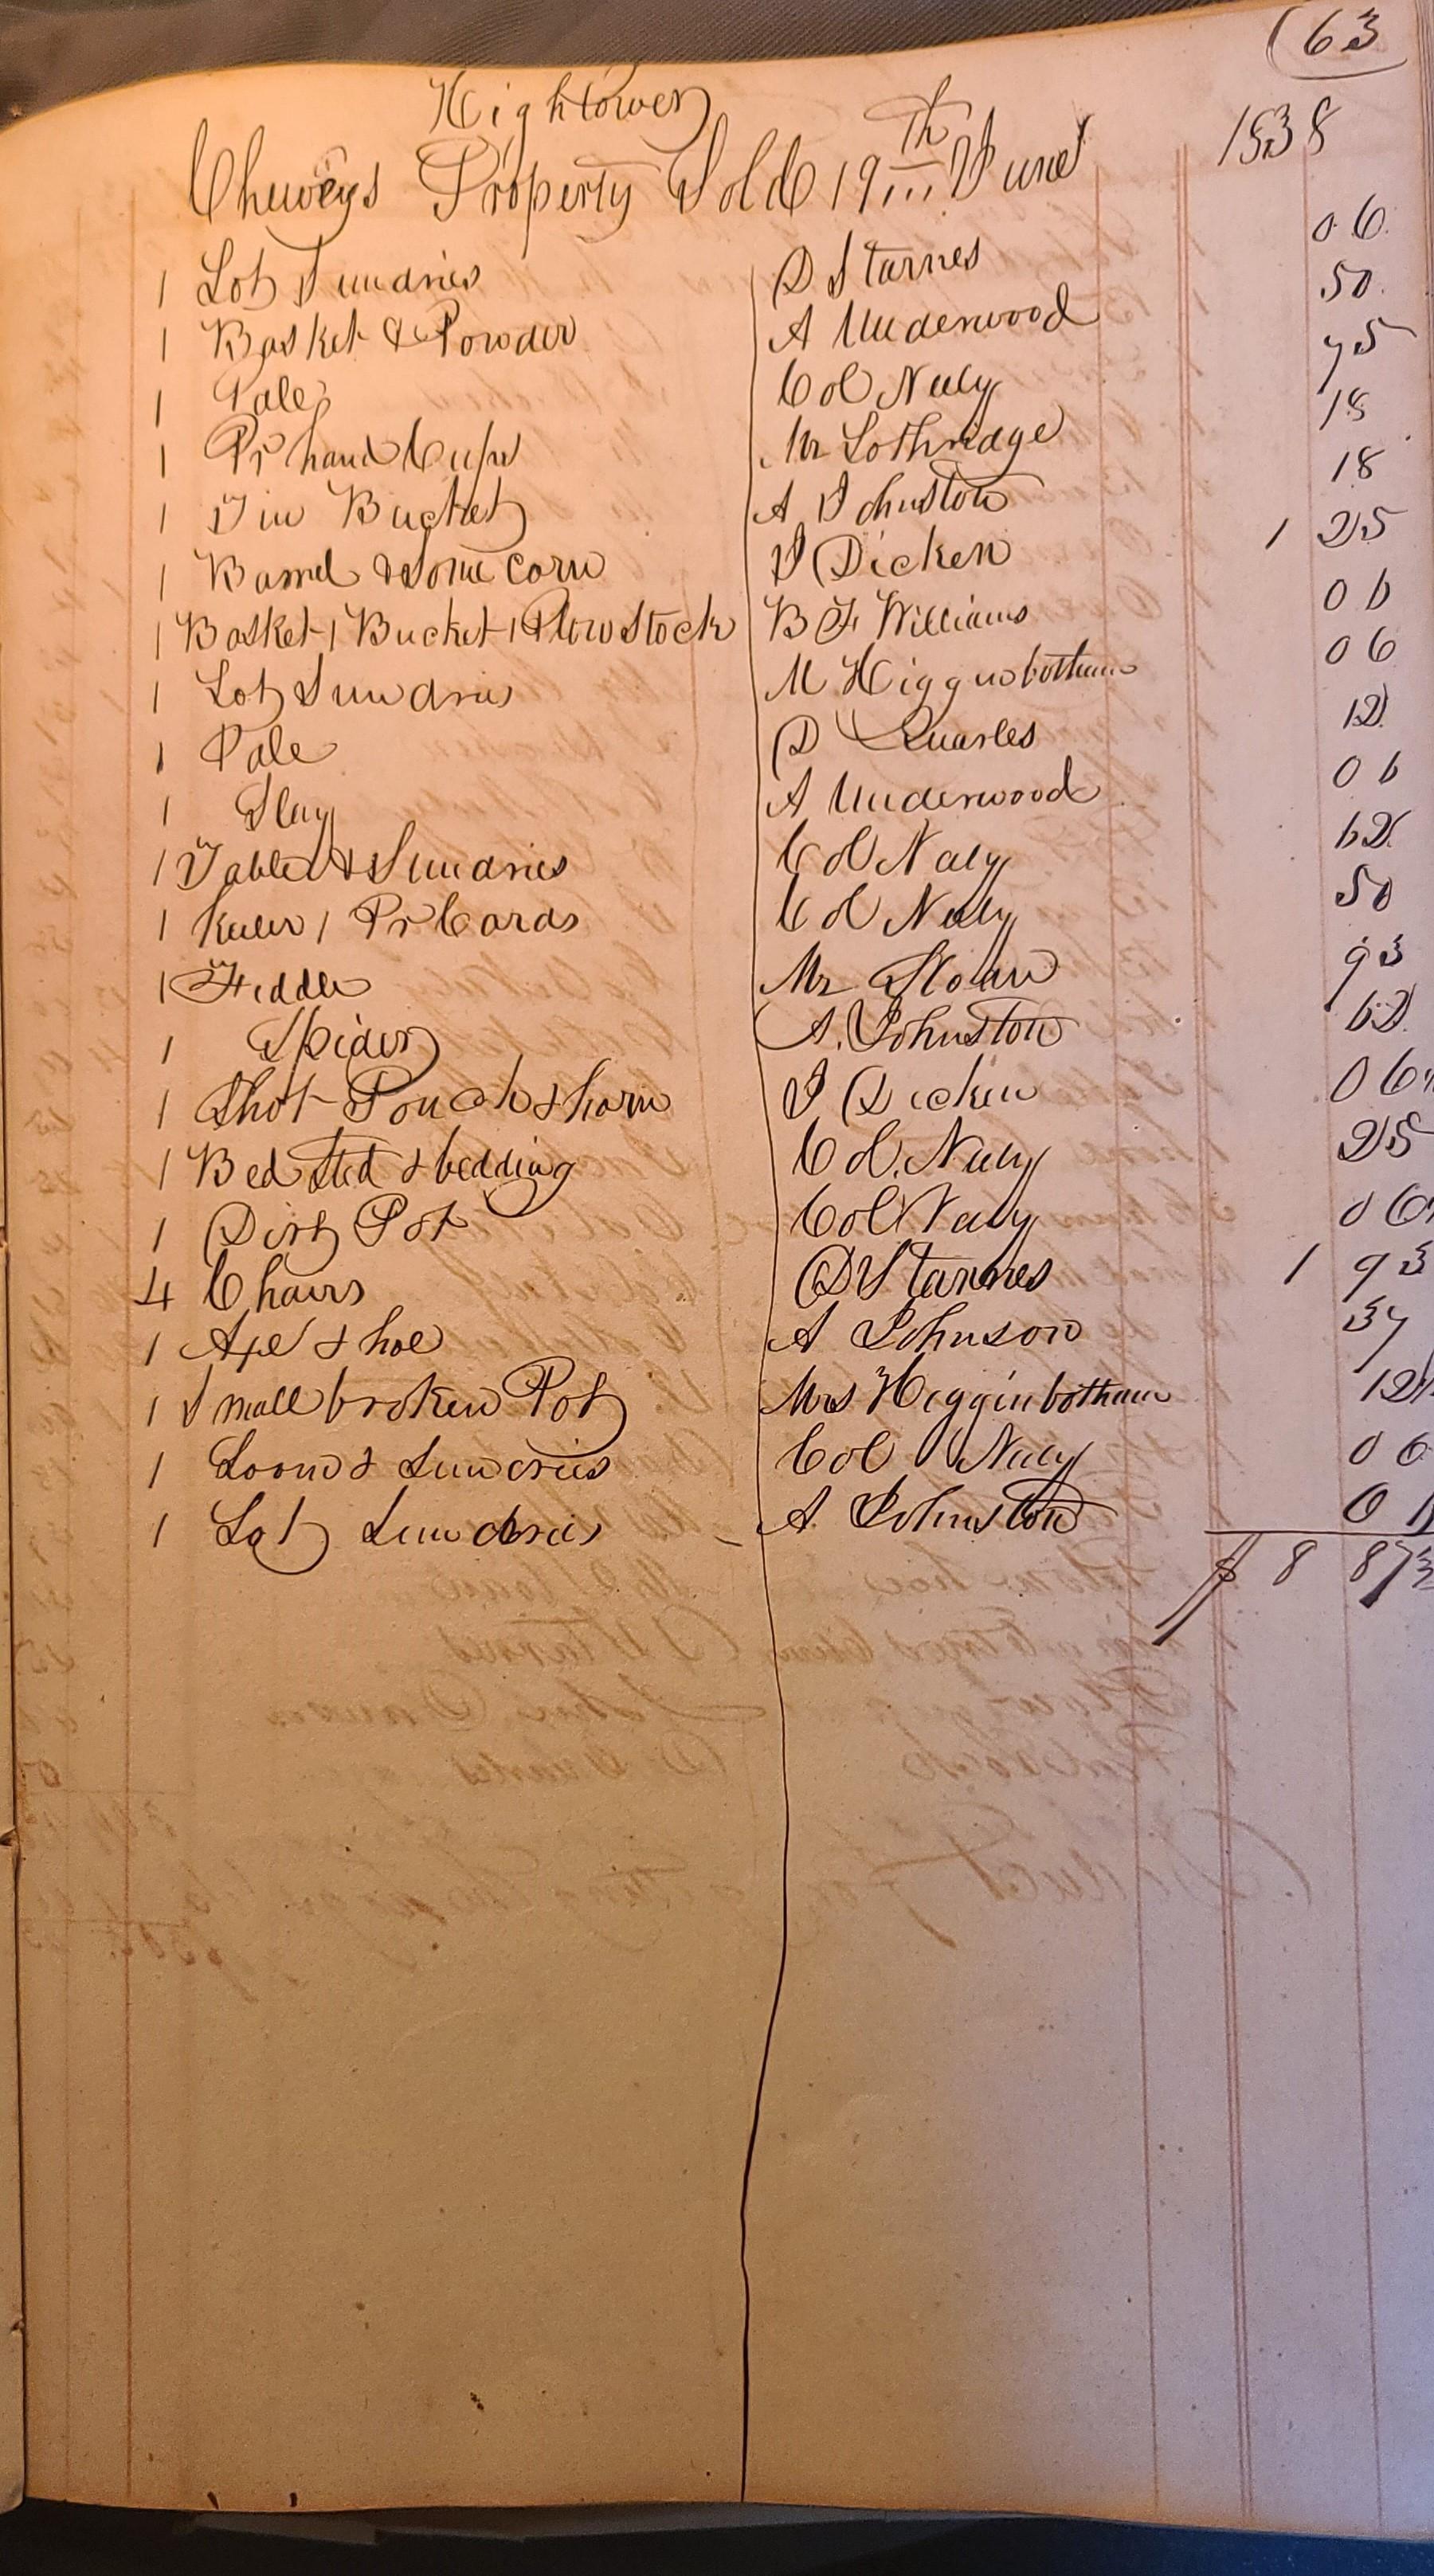 (63
Hightower
Chuweys Property Sold 19th June 1838
1 Lot Sundries D Starnes 06
1 Basket & Powder A Underwood 50
1 Pale Col Neely 75
1 Pr hand Cufs Mr Lothridge 18
1 Tin Bucket A Johnston 18
1 Barrel & Some Corn J Dicken 1 25
1 Basket 1 Bucket 1 Plow Stock B F Williams 06
1 Lot Sundries M Higginbotham 06
1 Pale D Quarles 12
1 Slay A Underwood 06
1 Table & Sundries Col Neely 62
1 Keeler 1 Pr Cards Col Neely 50
1 Fiddle Mr Sloan 93
1 Spider A. Johnston 62
1 Shot Pouch & horn J Dicken 06
1 Bed Sted & bedding Col. Neely 25
1 Dirt Pot Col Neely 06
4 Chairs D Starnes 1 93
1 Axe & hoe A Johnson 37
1 Small broken Pot Mrs Higginbotham 12
1 Loom & Sundries Col Neely 06
1 Lot Sundries A. Johnston
$ 8 87